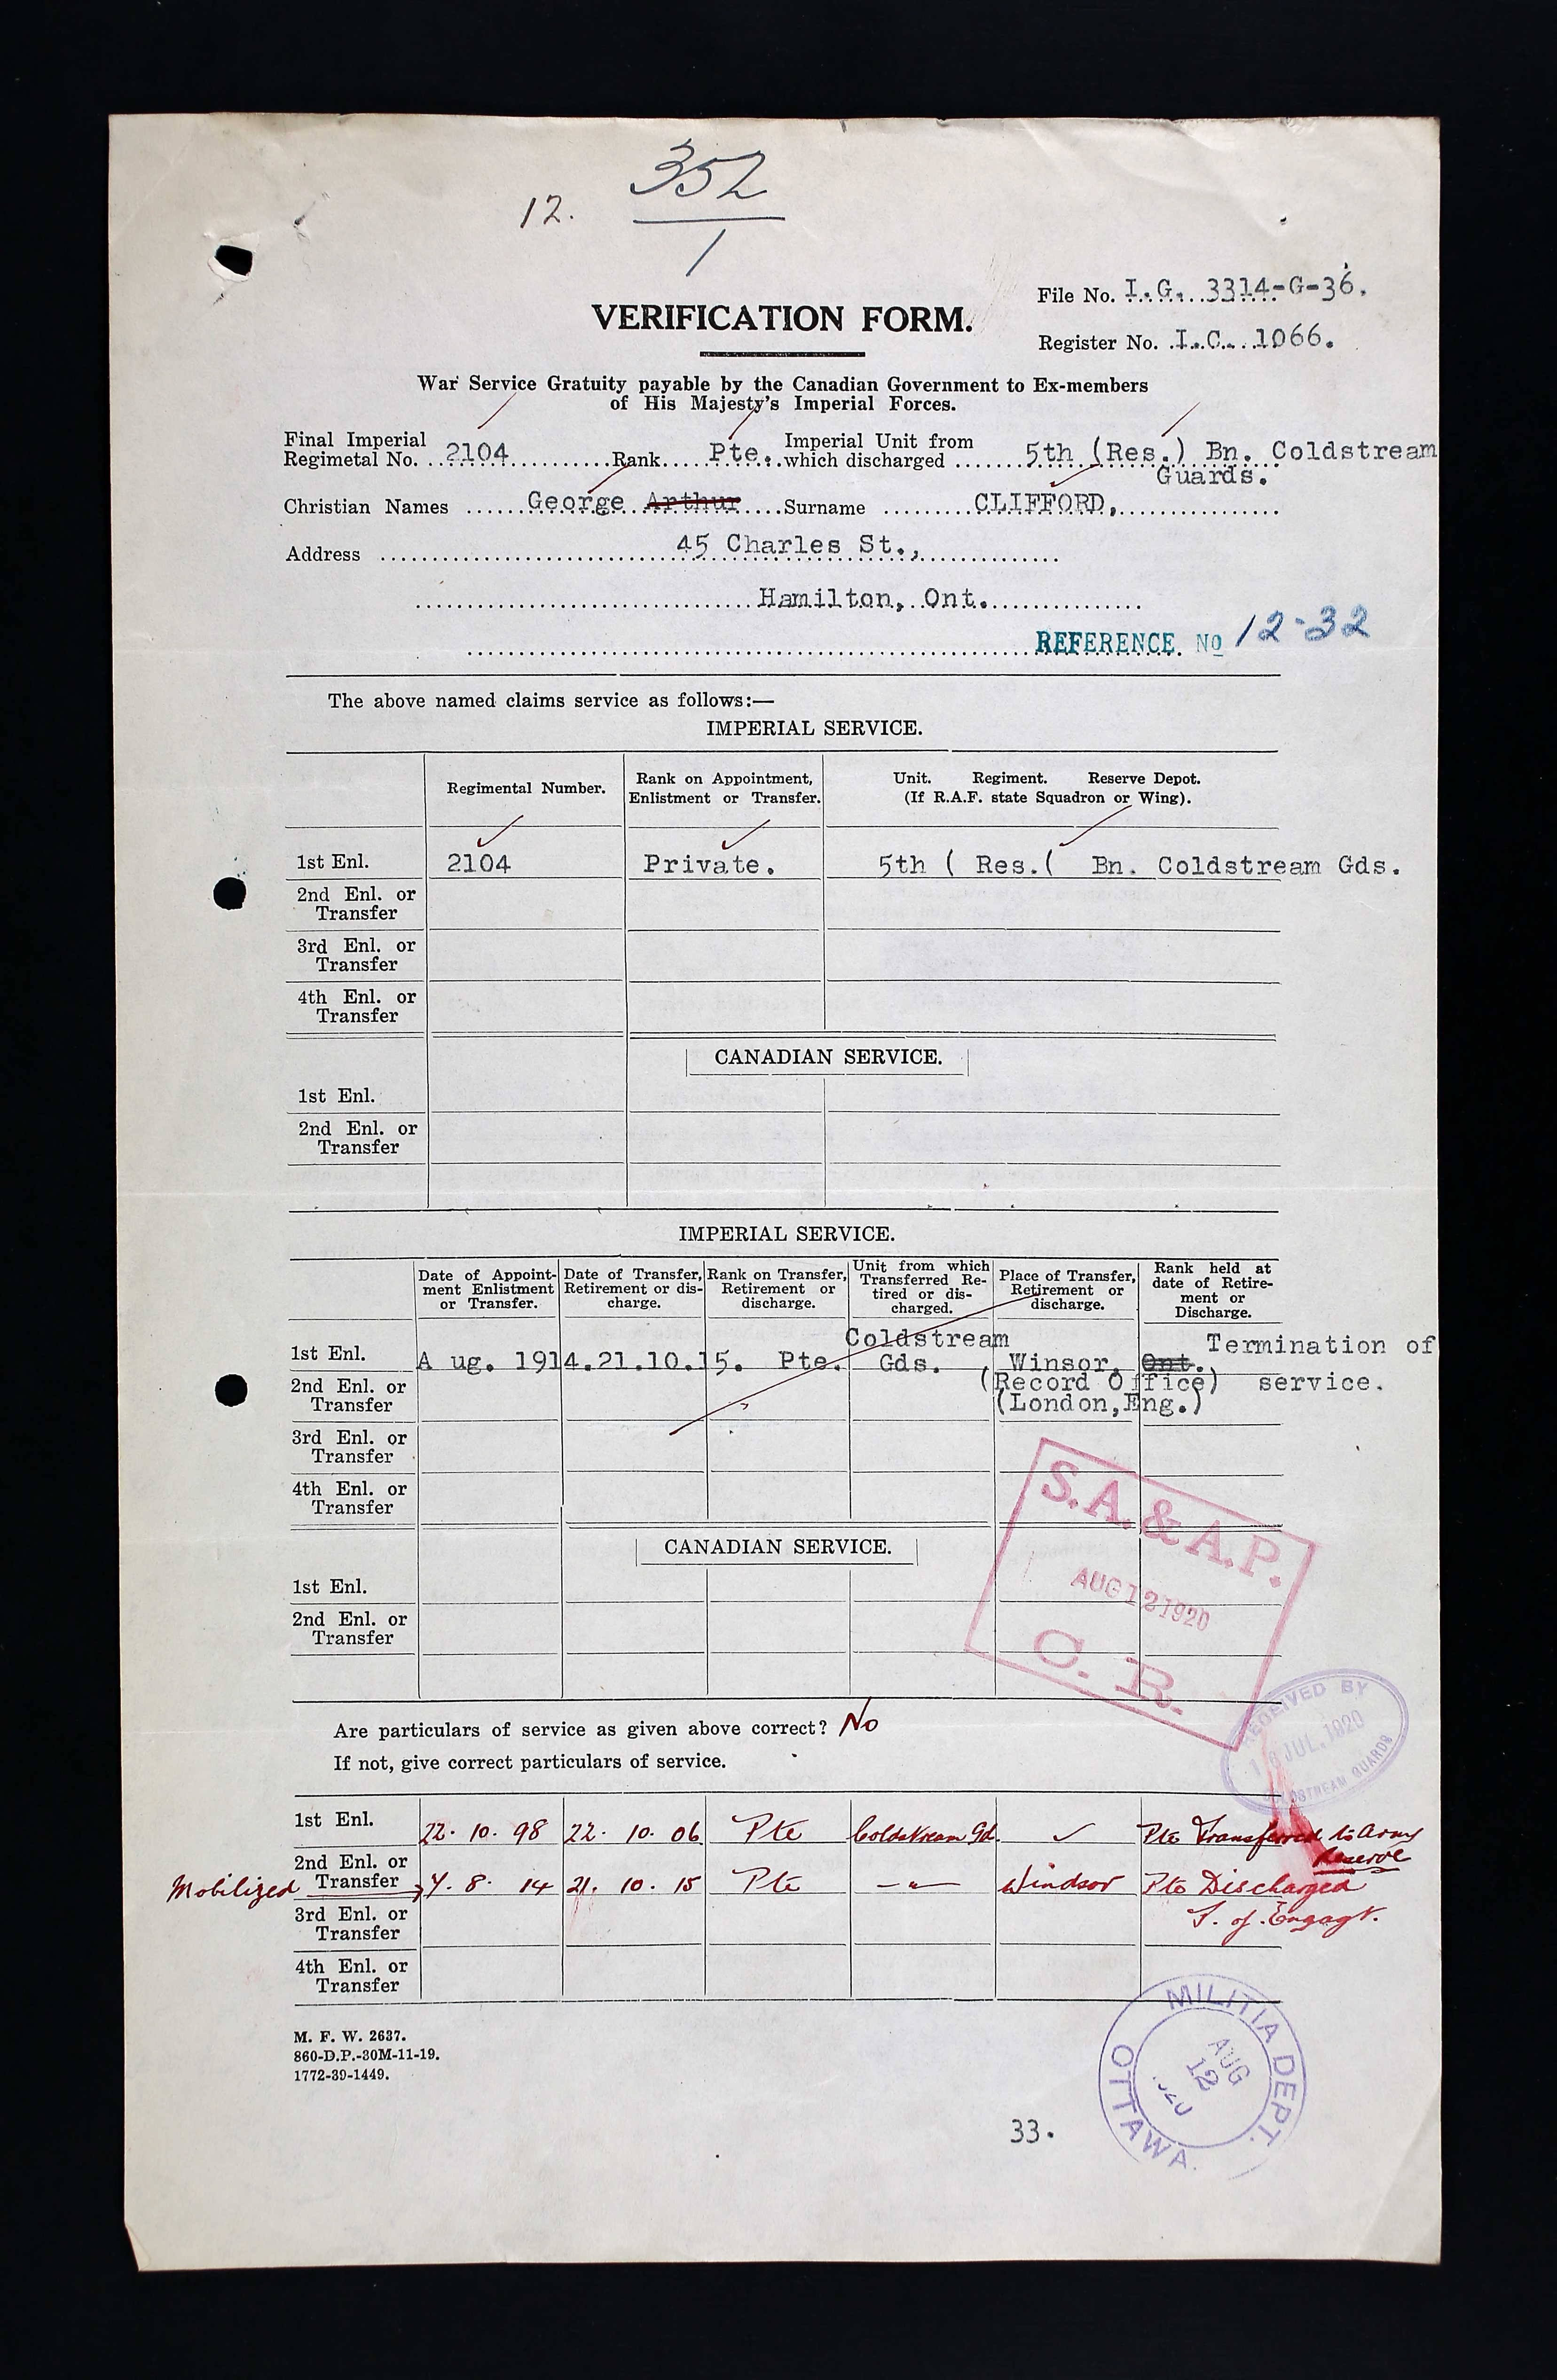 352
12.
1
File No. I.G. 3314-G-36.
VERIFICATION FORM.
Register No. I.C. 1066.
War Service Gratuity payable by the Canadian Government to Ex-members
of His Majesty's Imperial Forces.
Final Imperial Regimetal No. 2104 Rank Pte. Imperial Unit from which discharged 5th (Res.) Bn. Coldstream
Guards.
Christian Names George Arthur Surname CLIFFORD,
Address 45 Charles St.,
Hamilton, Ont.
REFERENCE No 12-32
The above named claims service as follows:—
IMPERIAL SERVICE.
Regimental Number. Rank on Appointment, Enlistment or Transfer. Unit. Regiment. Reserve Depot. (If R.A.F. state Squadron or Wing).
1st Enl. 2104 Private. 5th ( Res.( Bn. Coldstream Gds.
2nd Enl. or
Transfer
3rd Enl. or
Transfer
4th Enl. or
Transfer
CANADIAN SERVICE.
1st Enl.
2nd Enl. or
Transfer
IMPERIAL SERVICE.
Date of Appointment Enlistment or Transfer. Date of Transfer, Retirement or discharge. Rank on Transfer, Retirement or discharge. Unit from which Transferred Retired or discharged. Place of Transfer, Retirement or discharge. Rank held at date of Retirement or Discharge.
Coldstream Termination of
1st Enl. A ug. 1914. 21.10.15. Pte. Gds. , Winsor, Ont.
2nd Enl. or (Record Office) service.
Transfer (London,Eng.)
3rd Enl. or
Transfer
4th Enl. or
Transfer
S.A. & A.P.
AUG 12 1920
C. R.
CANADIAN SERVICE.
1st Enl.
2nd Enl. or
Transfer
Are particulars of service as given above correct? No
If not, give correct particulars of service.
RECEIVED BY
JUL. 1920
COLDSTREAM GUARDS
1st Enl. 22. 10. 98 22. 10. 06 Pte Coldstream Gd. ✓ Pte Transferred to Army
Reserve
2nd Enl. or
Mobilized Transfer 4. 8. 14 21. 10. 15 Pte —〃— Windsor Pte Discharged
T. of. Engagt.
3rd Enl. or
Transfer
4th Enl. or
Transfer
MILITIA DEPT.
AUG
12
1920
OTTAWA.
M. F. W. 2637.
860-D.P.-30M-11-19.
1772-39-1449.
33.